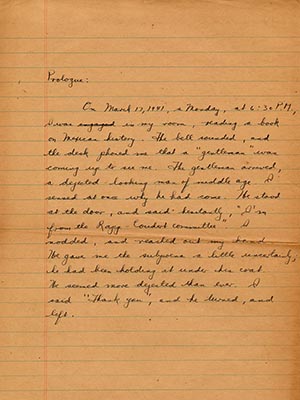 Prologue:
On March 17, 1941, a Monday, at 6:30 P.M.,
I was engaged in my room, reading a book
on Mexican history. The bell sounded, and
the desk phoned me that a "gentleman" was
coming up to see me. The gentleman arrived,
a dejected looking man of middle age. I
sensed at once why he had come. He stood
at the door, and said hesitantly, "I'm
from the Rapp-Coudert committee". I
nodded, and reached out my hand.
He gave me the subpoena a little uncertainly,
he had been holding it under his coat.
He seemed more dejected than ever. I
said "Thank you", and he turned, and
left.